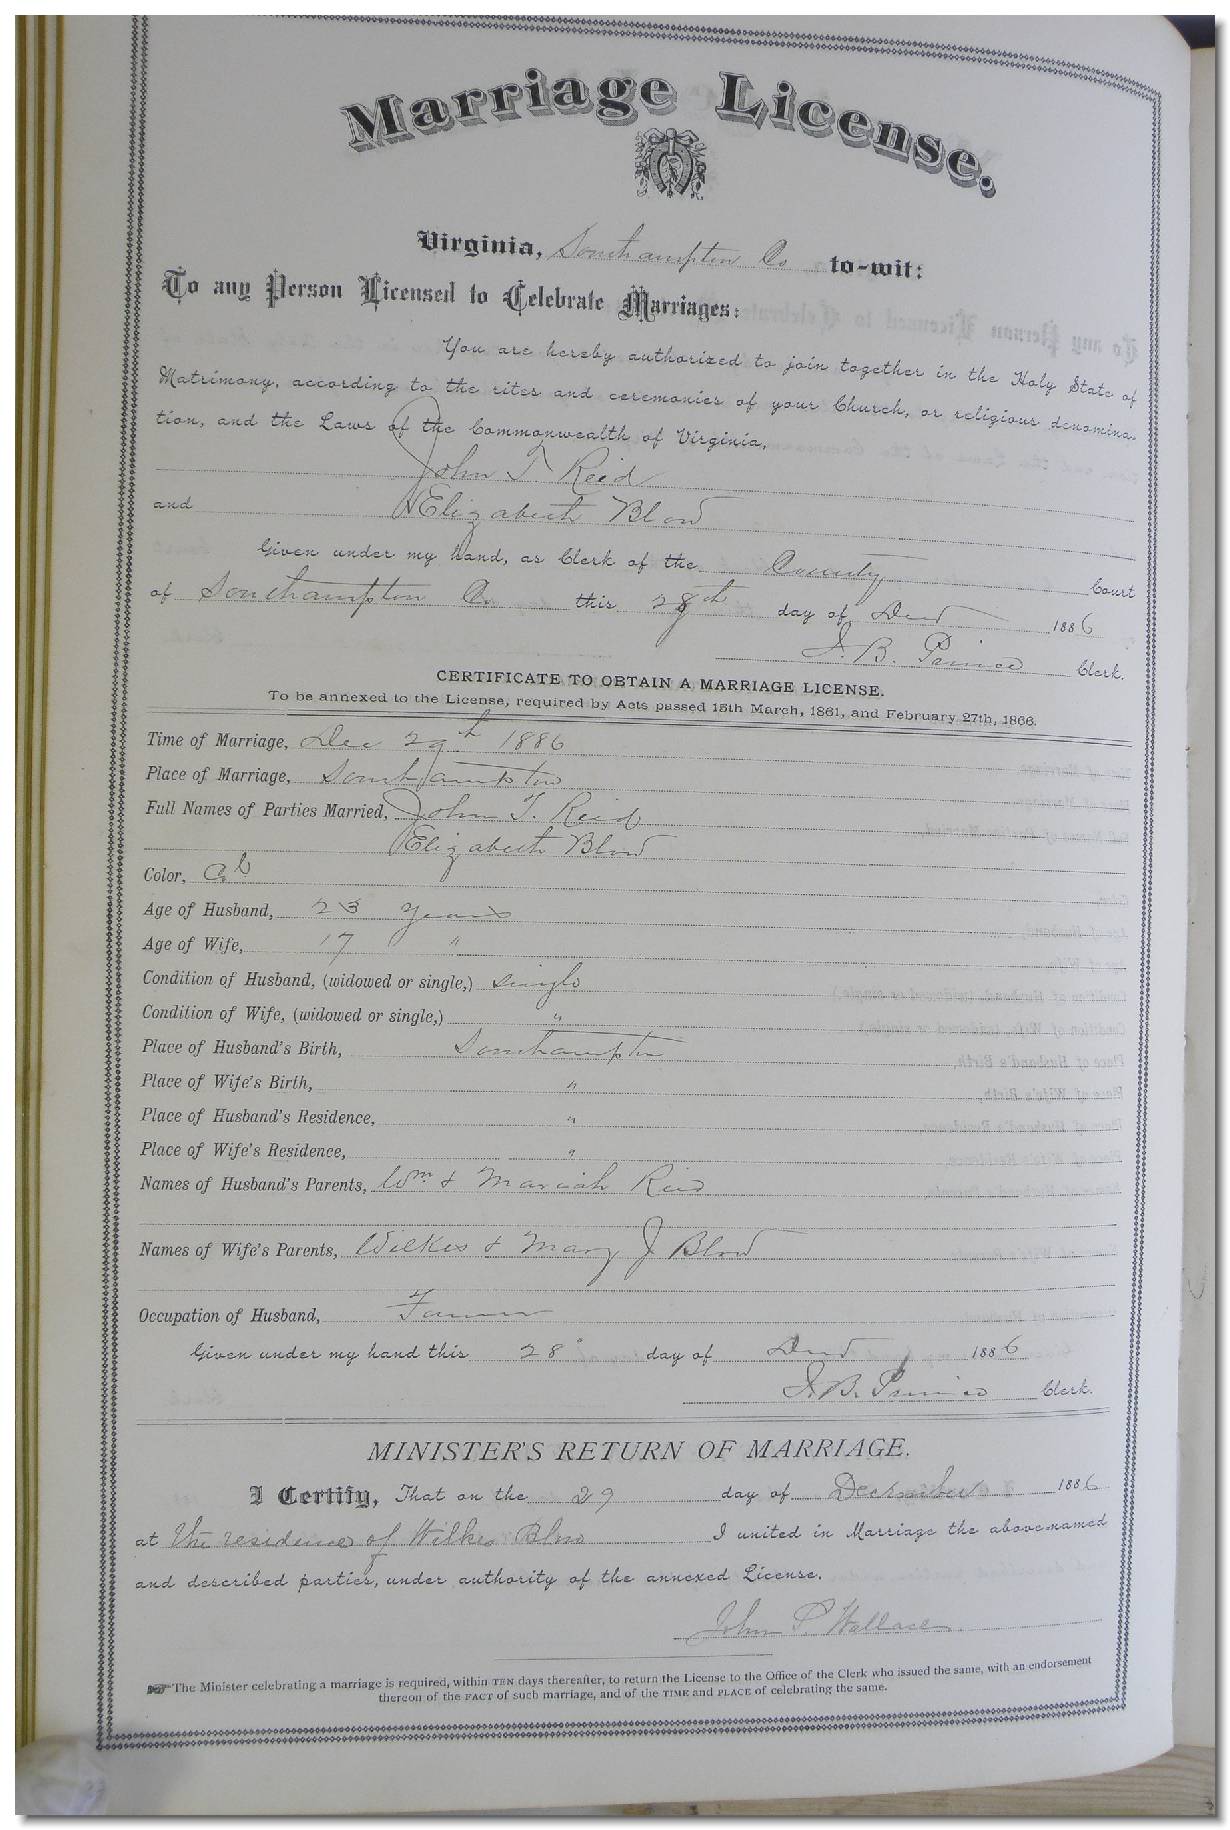 Marriage License.
Virginia, Southampton Co to-wit:
To any Person Licensed to Celebrate Marriages:
You are hereby authorized to join together in the Holy State of
Matrimony, according to the rites and ceremonies of your Church, or religious denomina-
tion, and the Laws of the Commonwealth of Virginia,
John T. Reid
and Elizabeth Blow
Given under my hand, as Clerk of the County Court
of Southampton Co this 28th day of Decr 1886
J. B. Prince Clerk.
CERTIFICATE TO OBTAIN A MARRIAGE LICENSE.
To be annexed to the License, required by Acts passed 15th March, 1861, and February 27th, 1866.
Time of Marriage, Dec 29th 1886
Place of Marriage, Southampton
Full Names of Parties Married, John T. Reid
Elizabeth Blow
Color, Cold
Age of Husband, 23 years
Age of Wife, 17 "
Condition of Husband, (widowed or single,) single
Condition of Wife, (widowed or single,) "
Place of Husband's Birth, Southampton
Place of Wife's Birth, "
Place of Husband's Residence, "
Place of Wife's Residence, "
Names of Husband's Parents, Wm. & Mariah Reid
Names of Wife's Parents, Wilkes & Mary J Blow
Occupation of Husband, Farmer
Given under my hand this 28" day of Decr 1886
J. B. Prince Clerk.
MINISTER'S RETURN OF MARRIAGE.
I Certify, That on the 29 day of December 1886
at the residence of Wilkes Blow I united in Marriage the above-named
and described parties, under authority of the annexed License.
John P. Wallace.
☛The Minister celebrating a marriage is required, within TEN days thereafter, to return the License to the Office of the Clerk who issued the same, with an endorsement
thereon of the FACT of such marriage, and of the TIME and PLACE of celebrating the same.